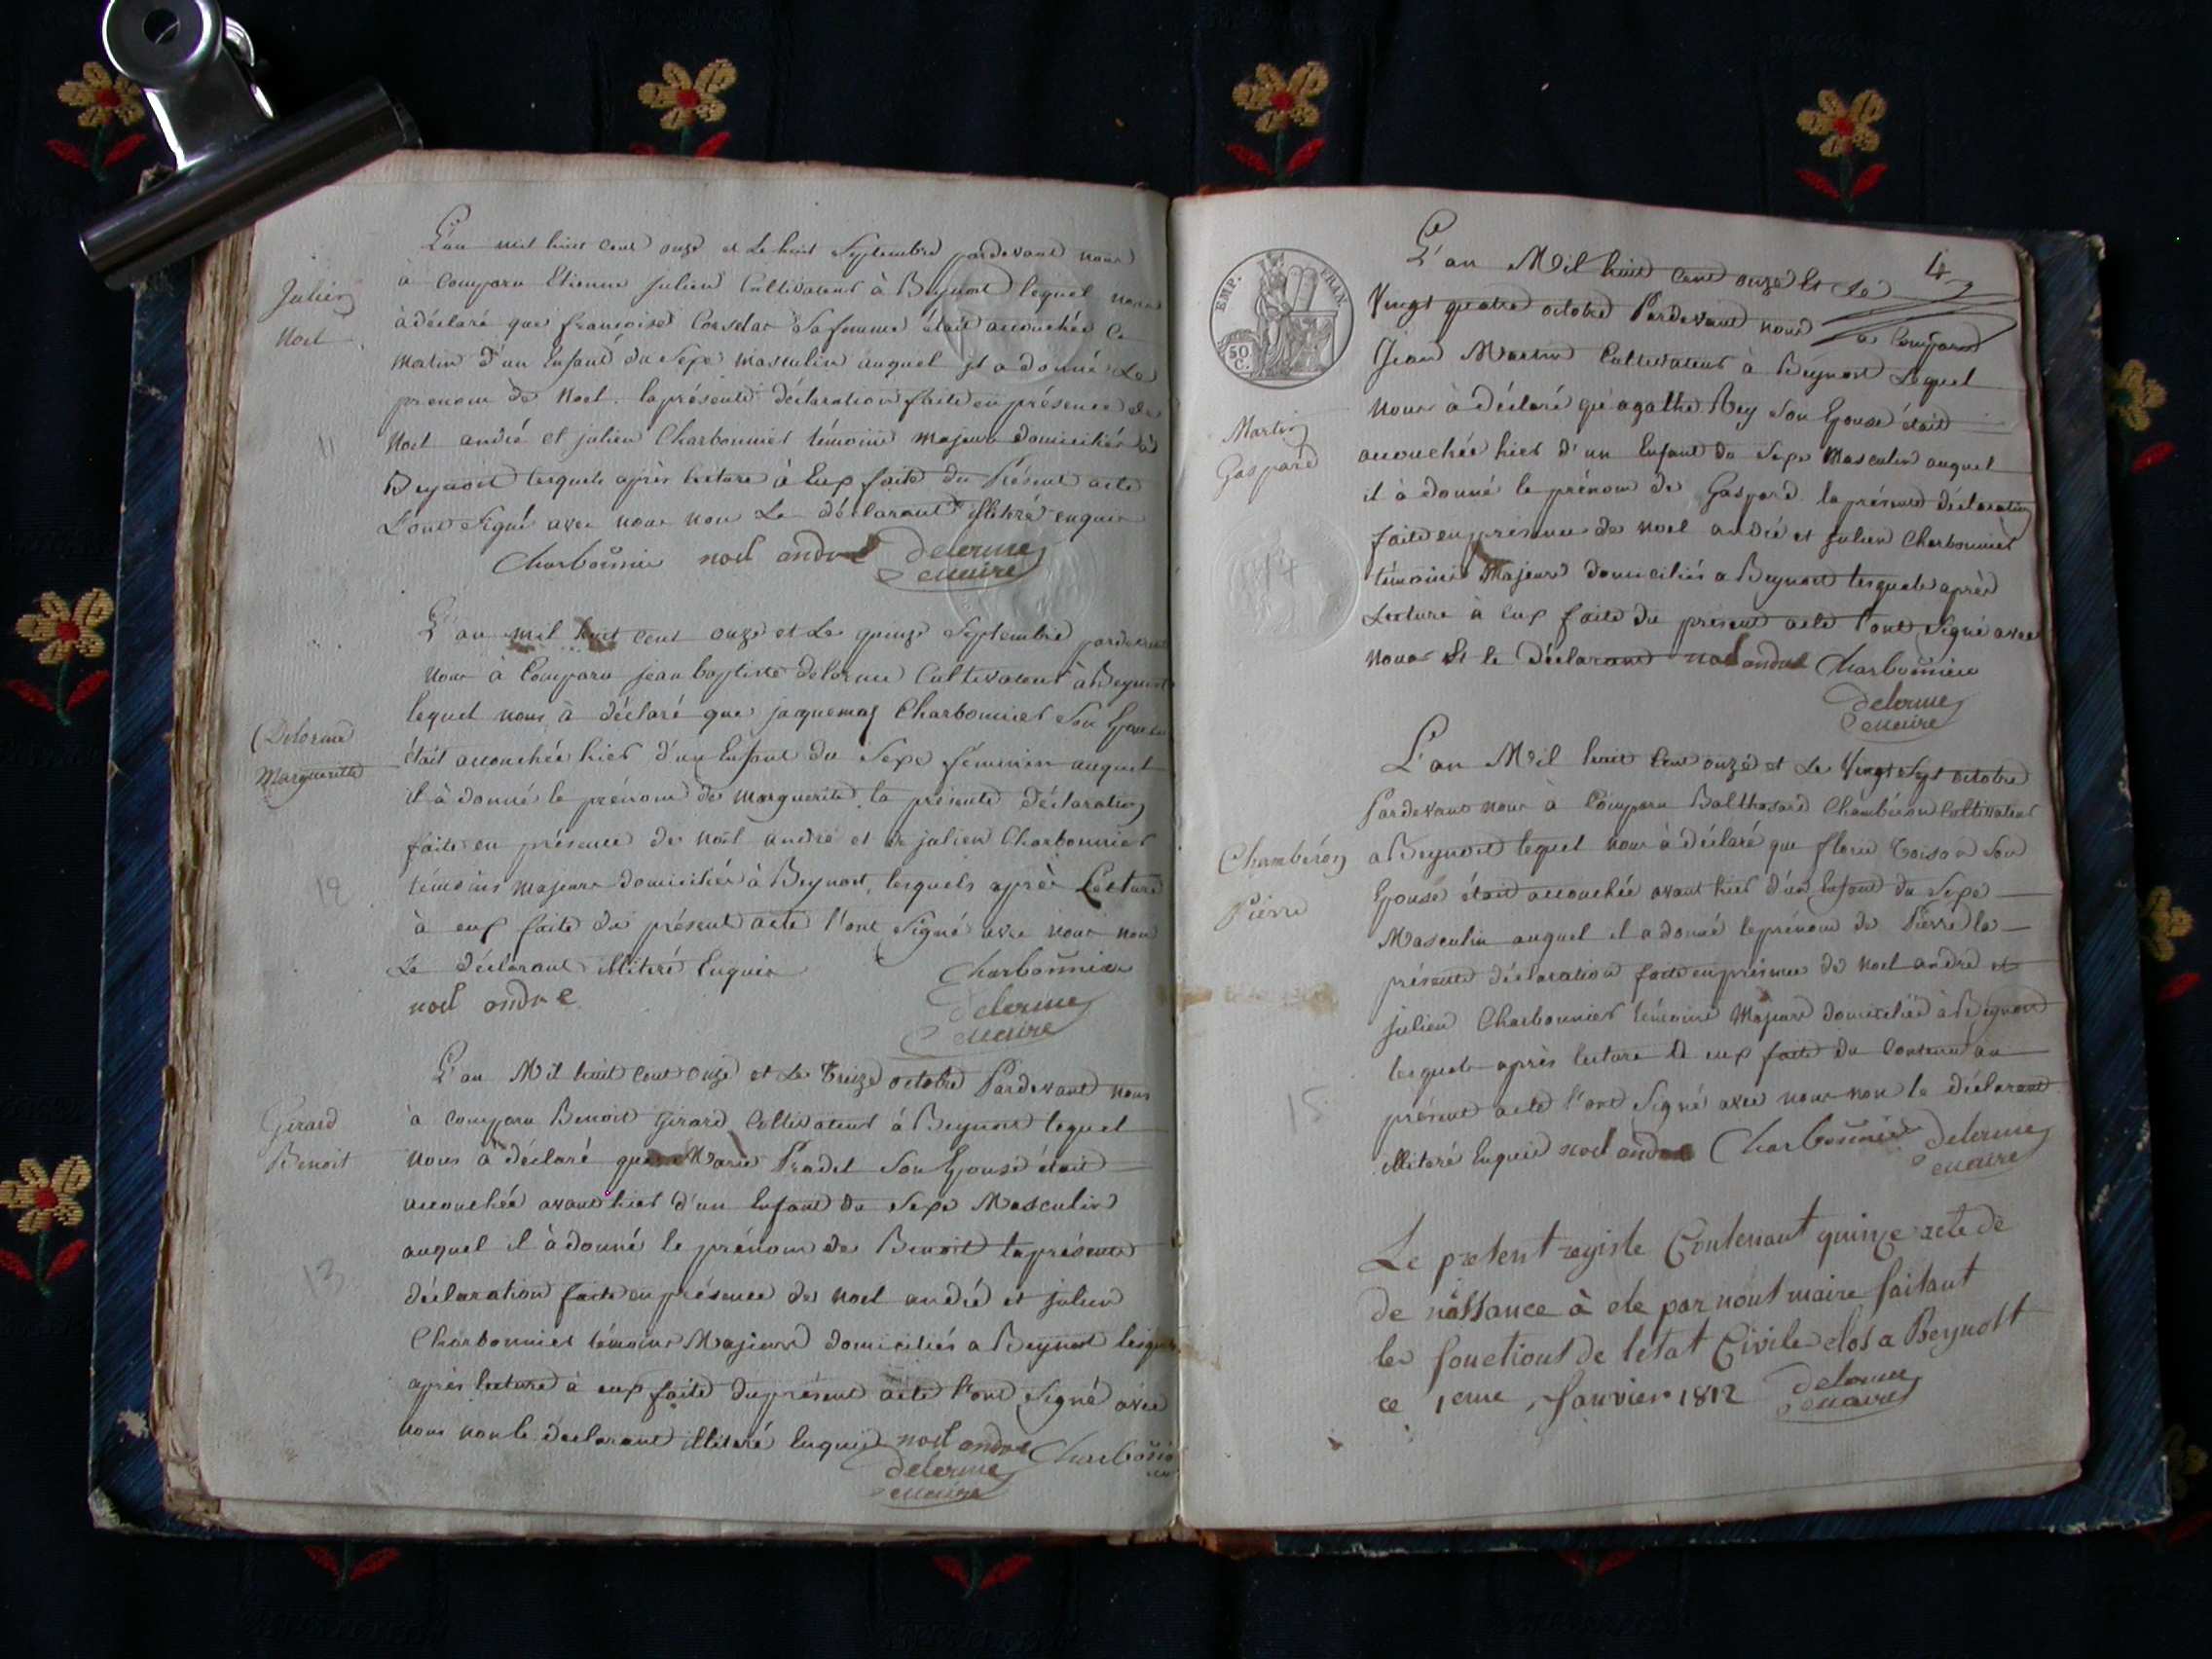 Julien
Noel
11
L'an mil huit cent onze et Le huit Septembre pardevant nous
à comparu Etienne julien Cultivateur à Beynost lequel nous
à déclaré que francoise Sa femme était accouchée ce
matin d'un Enfant du Sexe masculin auquel jl a donné Le
prenom de Noel. la présente déclaration faite en présence de
Noel andré et julien Charbonnier témoins majeurs domiciliés à
Beynost lesquels après lecture à Eux faite du Présent acte
L'ont Signé avec nous non Le déclarant illitéré enquis
Charbonnier noel andre delorme
maire
Delorme
Margueritte
12
L'an mil huit cent onze et Le quinze Septembre pardevant
nous à Comparu jean baptiste delorme Cultivateur à Beynost
lequel nous à déclaré que Charbonnier Son Epouse
était accouchée hier d'un Enfant du Sexe féminin auquel
il à donné le prénom de marguerite la présente déclaration
faite en présence de noël andré et de julien Charbonnier
témoins majeurs domiciliés à Beynost, lesquels après Lecture
à eux faite du présent acte l'ont Signé avec nous non
Le déclarant illitéré Enquis Charbonnier
noel andre delorme
maire
Girard
Benoit
13
L'an Mil huit cent onze et Le Treize octobre Pardevant nous
à comparu Benoit Girard Cultivateur à Beynost lequel
nous à déclaré que Marie Pradel Son Epouse était
accouchée avant hier d'un Enfant du Sexe Masculin
auquel il à donné le prénom de Benoit la présente
déclaration faite en présence de Noel andré et julien
Charbonnier témoins Majeurs domiciliés a Beynost lesquels
après lecture à eux faite du présent acte l'ont Signé avec
nous non le déclarant illitéré Enquis noel andre Charbonnier
delorme
maire
4
EMP. FRAN.
50
C.
Martin
Gaspard
L'an Mil huit cent onze Et Le
Vingt quatre octobre Pardevant nous a comparu
Jean Martin Cultivateur à Beynost Lequel
nous à déclaré qu'agathe Rey Son Epouse était
accouchée hier d'un Enfant du Sexe Masculin auquel
il à donné le prénom de Gaspard la présente déclaration
faite en présence de noel andré et julien Charbonnier
témoins Majeurs domiciliés a Beynost lesquels après
Lecture à eux faite du présent acte l'ont Signé avec
nous Et le Déclarant noel andre Charbonnier
delorme
maire
Chambéron
Pierre
15
L'an Mil huit Cent onze et Le Vingt Sept octobre
Pardevant nous à Comparu Balthasard Chambéron Cultivateur
a Beynost lequel nous à déclaré que florie Toison Son
Epouse était accouchée avant hier d'un Enfant du Sexe
Masculin auquel il a donné le prénom de Pierre la
présente déclaration faite en présence de Noel andré et
julien Charbonnier témoins Majeurs domiciliés à Beynost
lesquels après lecture à eux faite du Contenu au
présent acte l'ont Signé avec nous non le déclarant
illitéré Enquis noel andre Charbonnier delorme
maire
Le present registe Contenant quinze acte de
de naissance à ete par nous maire faisant
les fonctions de letat Civile clos a Beynost
ce 1erme Janvier 1812 delorme
maire